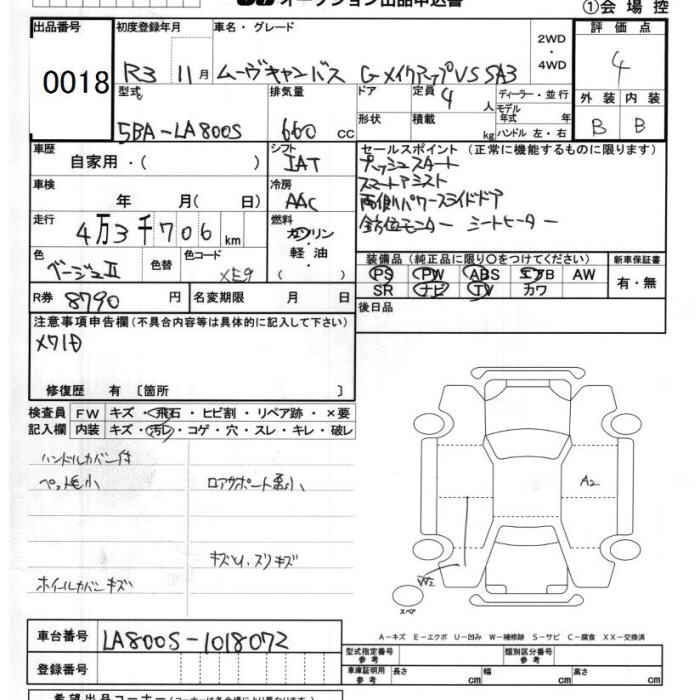 オークション出品申込書
①会場控
出品番号 0018
初度登録年月 R3 11月
車名・グレード ムーヴキャンバス Gメイクアップ VS SA3
2WD・4WD
評価点 4
外装 内装
B B
型式 5BA-LA800S
排気量 660 cc
ドア 形状
定員 4 人
積載 kg
ディーラー・並行
モデル年式 年
ハンドル 左・右
車歴 自家用・( )
シフト IAT
セールスポイント (正常に機能するものに限ります)
プッシュスタート
スマートアシスト
両側パワースライドドア
全方位モニター シートヒーター
車検 年 月( 日)
冷房 AAC
走行 4万3千706km
燃料 ガソリン・軽油・( )
色 ベージュII
色替
色コード XE9
装備品 (純正品に限り○をつけてください)
新車保証書
PS PW ABS エアB AW
有・無
SR ナビ TV カワ
R券 8790 円
名変期限 月 日
後日品
注意事項申告欄 (不具合内容等は具体的に記入して下さい)
修復歴 有 〔箇所 〕
検査員 FW キズ・飛石・ヒビ割・リペア跡・×要
記入欄 内装 キズ・汚レ・コゲ・穴・スレ・キレ・破レ
ハンドルカバー付
ペット毛小
ロアサポート錆小
キズU.スリキズ
ホイールカバーキズ
A2
W2
スペア
A-キズ E-エクボ U-凹み W-補修跡 S-サビ C-腐食 XX-交換済
車台番号 LA800S-1018072
登録番号
型式指定番号 参考
類別区分番号 参考
車庫証明用 参考 長さ cm 幅 cm 高さ cm
希望出品コーナー (コーナーは各会場により異なります)